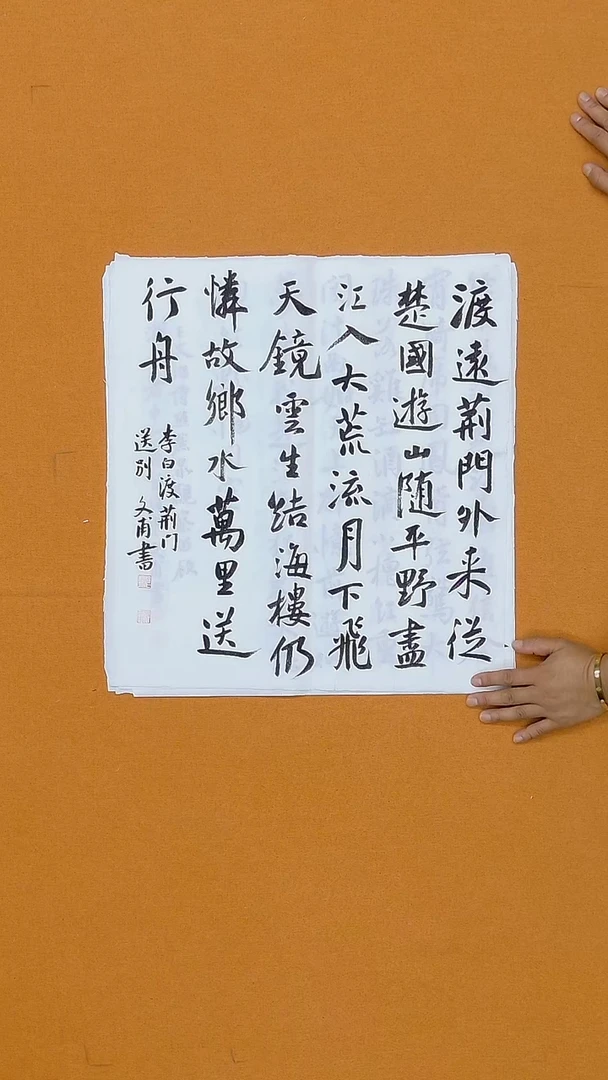 渡遠荆門外来従
楚國遊山随平野盡
江入大荒流月下飛
天鏡雲生結海樓仍
憐故鄉水萬里送
行舟
李白渡荆门
送别 文甫書